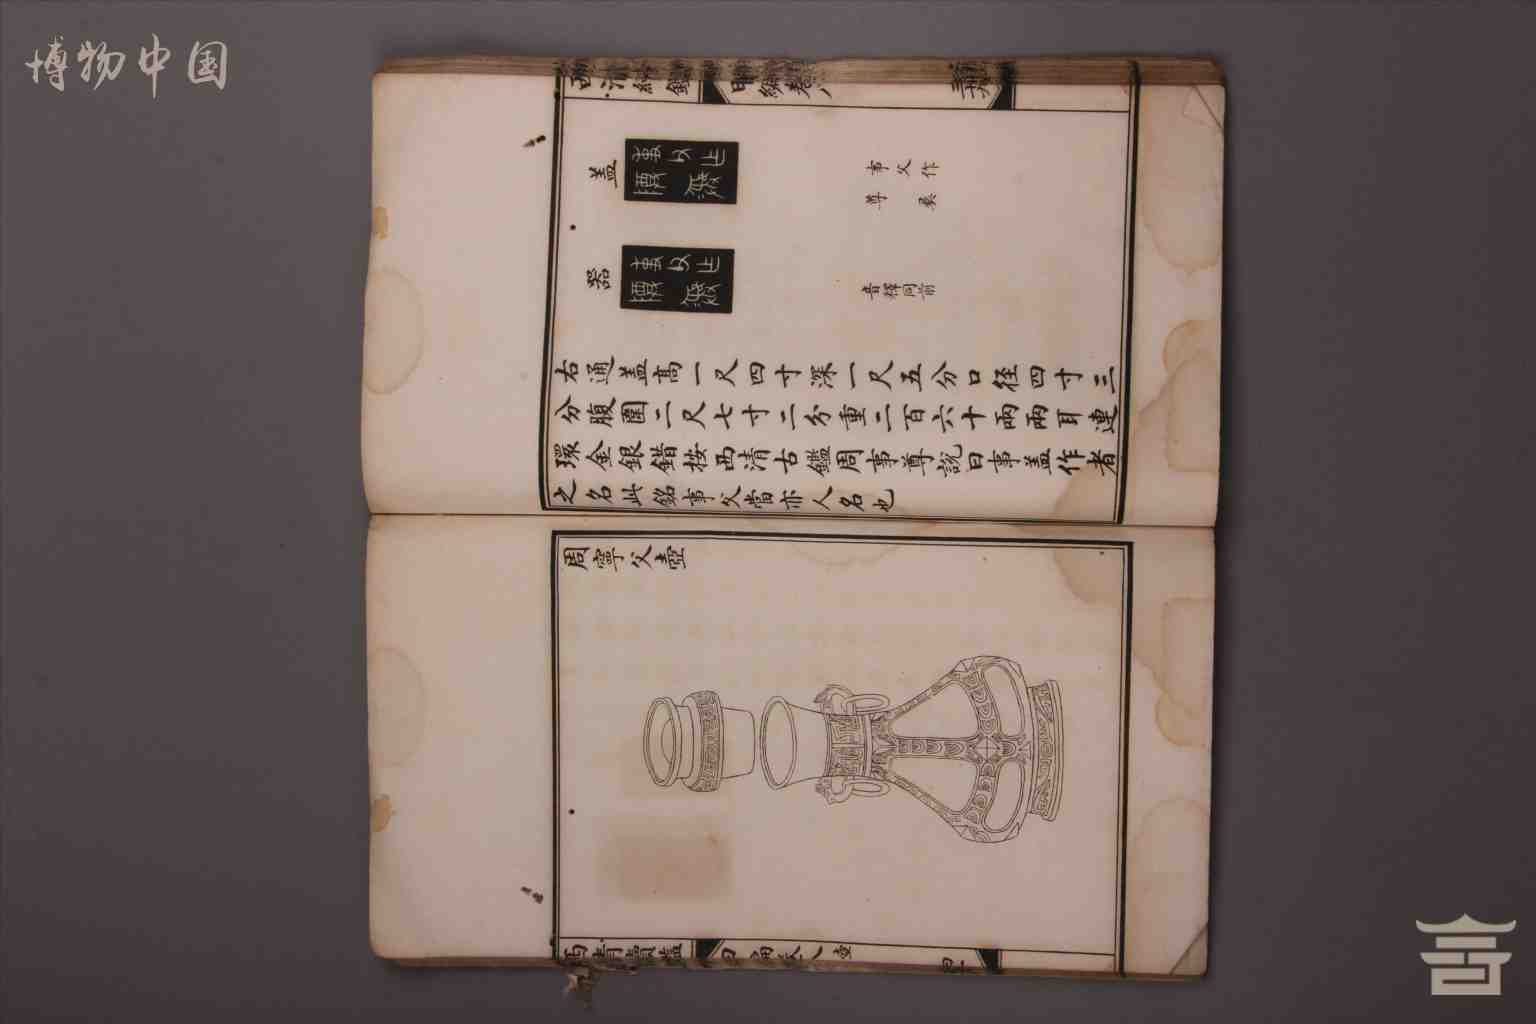 博物中国
西清續鑑 甲編卷八
蓋
事父作
尊
器
音釋同前
右通蓋高一尺四寸深一尺五分口徑四寸三
分腹圍二尺七寸二分重二百六十兩兩耳連
環金銀錯按西清古鑑周事尊說曰事蓋作者
之名此銘事父當亦人名也
周寧父壺
西清續鑑 甲編卷八 壺